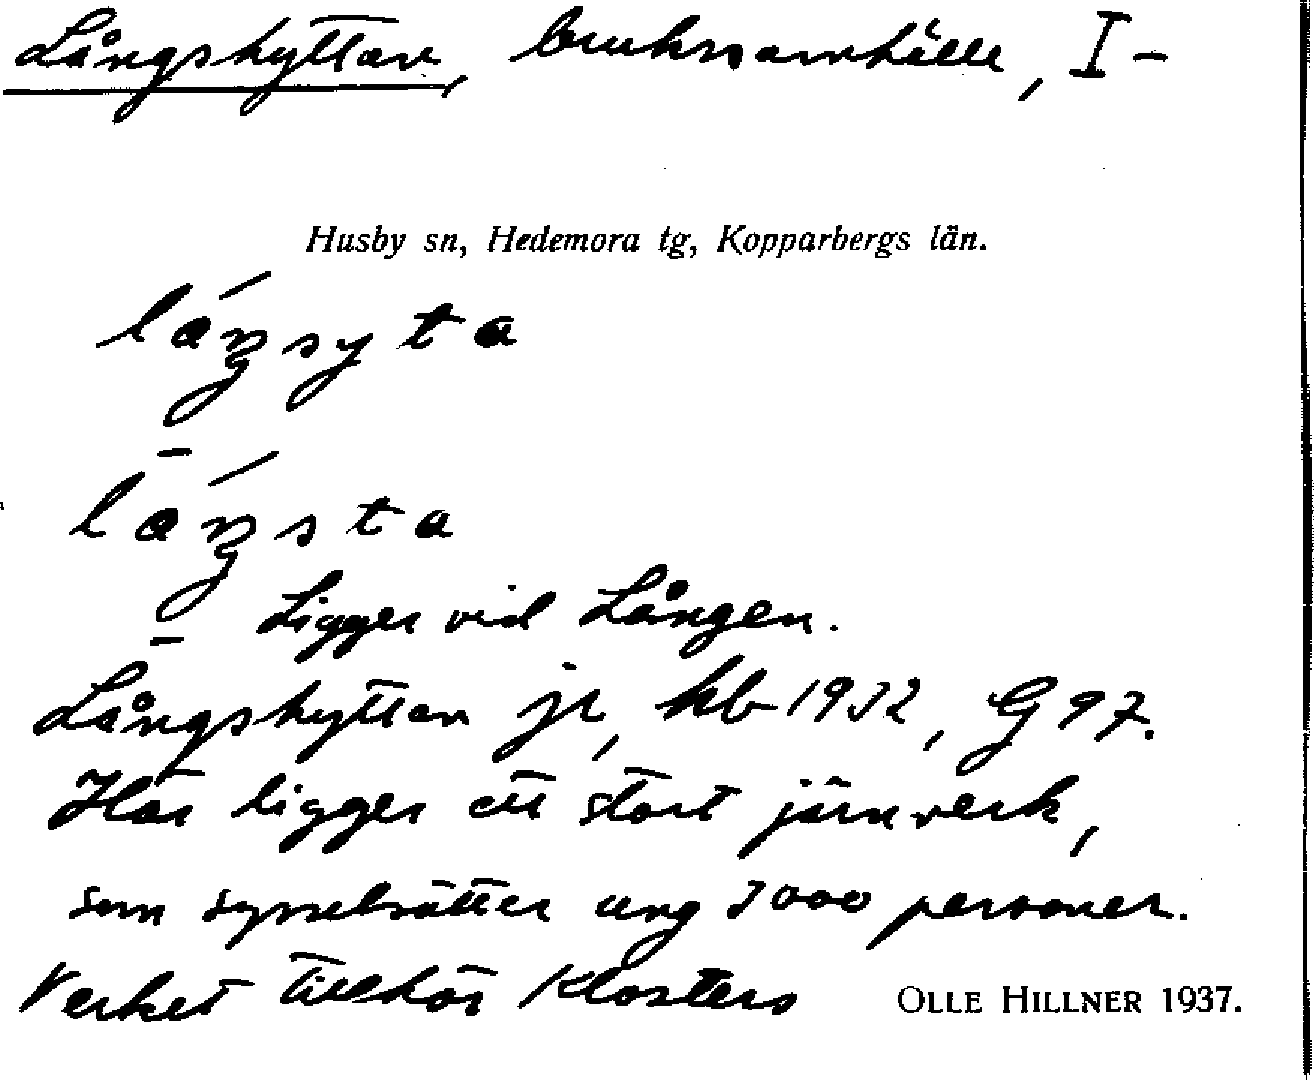 Långshyttan, brukssamhälle, I-
Husby sn, Hedemora tg, Kopparbergs län.
láŋsyta
láŋsta
Ligger vid Lången.
Långshyttan jr, kb 1932, G 97.
Här ligger ett stort järnverk,
som sysselsätter ung 1000 personer.
Verket tillhör Klosters
OLLE HILLNER 1937.